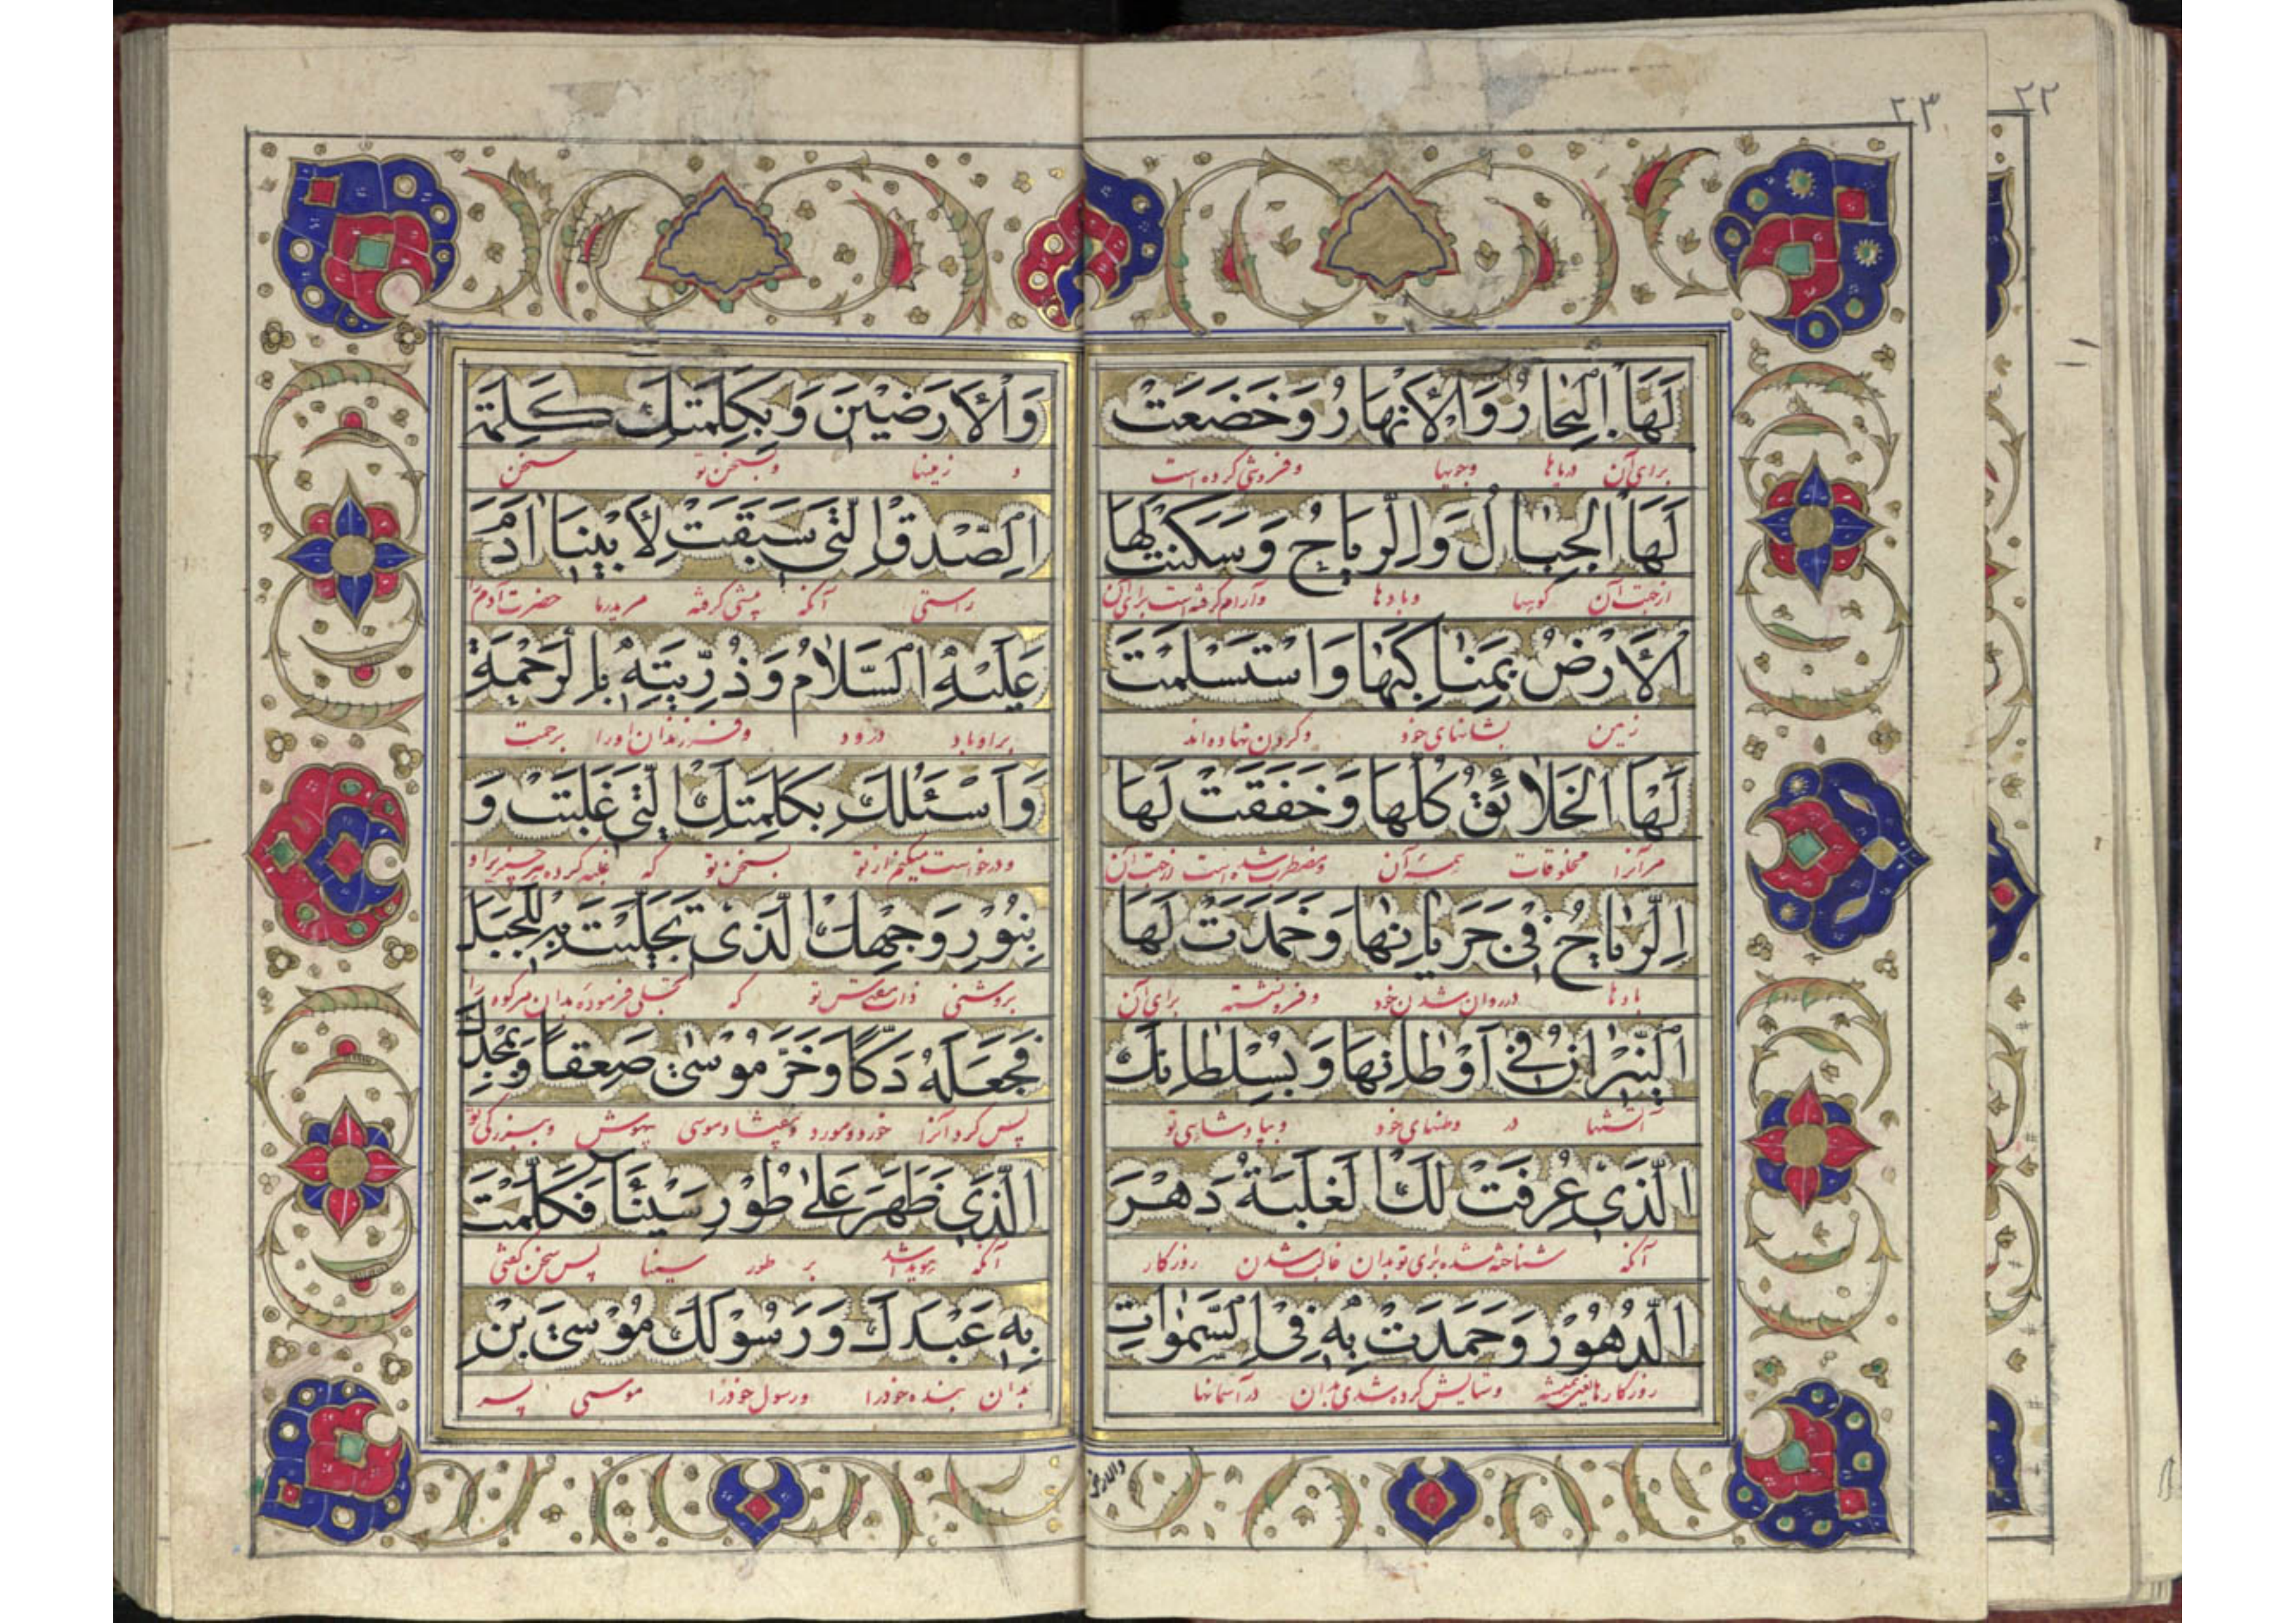 ٢٣
٢٢
لَهَا الْبِحَارُ وَالْأَنْهَارُ وَخَضَعَتْ
برای آن دریاها وجویها وفروتنی کرده است
لَهَا الْجِبَالُ وَالرِّيَاحُ وَسَكَنَتْ لَهَا
ازجهت آن کوهها وبادها وآرام گرفته است برای آن
الْأَرْضُ بِمَنَاكِبِهَا وَاسْتَسْلَمَتْ
زمین بشانهای خود وگردن نهاده اند
لَهَا الْخَلَائِقُ كُلُّهَا وَخَفَقَتْ لَهَا
مرآنرا مخلوقات همه آن ومضطرب شده است ازجهت آن
الرِّيَاحُ فِي جَرَيَانِهَا وَخَمَدَتْ لَهَا
بادها درروان شدن خود وفرونشسته برای آن
النِّيرَانُ فِي أَوْطَانِهَا وَبِسُلْطَانِكَ
آتشها در وطنهای خود وبپادشاهی تو
الَّذِي عُرِفَتْ لَكَ الْغَلَبَةُ دَهْرَ
آنکه شناخته شده برای تو بدان غالب شدن روزگار
الدُّهُورِ وَحُمِدْتَ بِهِ فِي السَّمٰوَاتِ
روزگارها یعنی همیشه وستایش کرده شدی بدان درآسمانها
والارضین
وَالْأَرَضِينَ وَبِكَلِمَتِكَ كَلِمَةِ
و زمینها وبسخن تو سخن
الصِّدْقِ الَّتِي سَبَقَتْ لِأَبِينَا آدَمَ
راستی آنکه پیشی گرفته مرپدرما حضرت آدم را
عَلَيْهِ السَّلَامُ وَذُرِّيَّتِهِ بِالرَّحْمَةِ
براوباد درود وفرزندان اورا برحمت
وَأَسْئَلُكَ بِكَلِمَتِكَ الَّتِي غَلَبَتْ وَ
ودرخواست میکنم ازتو بسخن تو که غلبه کرده هرچیزیرا و
بِنُورِ وَجْهِكَ الَّذِي تَجَلَّيْتَ بِهِ لِلْجَبَلِ
بروشنی ذات مقدس تو که تجلی فرموده بدان مرکوه را
فَجَعَلَهُ دَكًّا وَخَرَّ مُوسٰى صَعِقًا وَبِمَجْدِكَ
پس کرد آنرا خورد ومورد وبیفتاد موسی بیهوش وببزرگی تو
الَّذِي ظَهَرَ عَلٰى طُورِ سَيْنَاءَ فَكَلَّمْتَ
آنکه هویدا شد بر طور سینا پس سخن گفتی
بِهِ عَبْدَكَ وَرَسُولَكَ مُوسَى بْنَ
بدان بنده خودرا ورسول خودرا موسی پسر